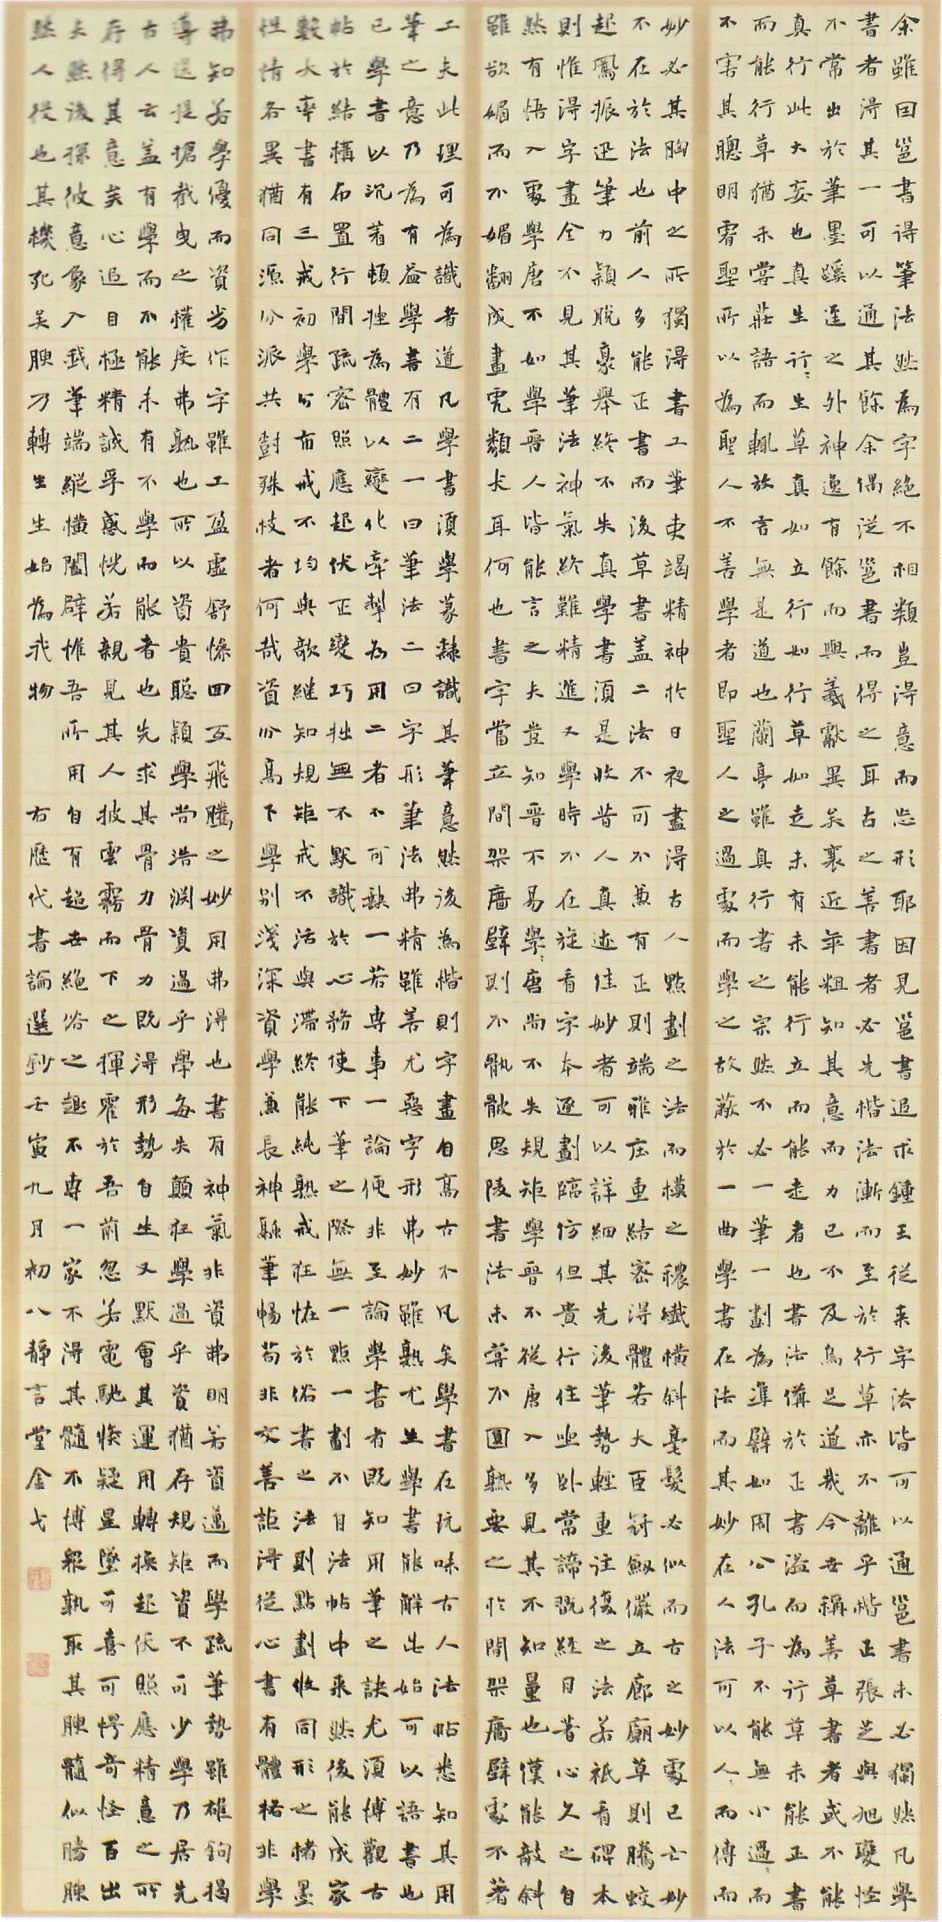 余雖曰邕書得筆法然為字絕不相類豈得意而忘形耶因見邕書追求鍾王從來字法皆可以通邕書未必獨然凡學
書者得其一可以通其餘余偶從邕書而得之耳古之善書者必先楷法漸而至於行草亦不離乎楷正張芝與旭變怪
不常出於筆墨蹊逕之外神逸有餘而與羲獻異矣襄近年粗知其意而力已不及烏足道哉今吾稱善草書者或不能
真行此大妄也真生行行生草真如立行如行草如走未有未能行立而能走者也書法備於正書溢而為行草未能正書
而能行草猶未嘗莊語而輒放言無是道也蘭亭雖真行書之宗然不必一筆一劃為準譬如周公孔子不能無小過過而
不害其聰明睿聖所以為聖人不善學者即聖人之過處而學之故蔽於一曲學書在法而其妙在人法可以人人而傳而
妙必其胸中之所獨得書工筆吏竭精神於日夜盡得古人點劃之法而模之穠纖橫斜毫髮必似而古之妙處已亡妙
不在於法也前人多能正書而後草書蓋二法不可不兼有正則端雅莊重結密得體若大臣冠劔儼立廊廟草則騰蛟
起鳳振迅筆力穎脫豪舉終不失真學書須是收昔人真迹佳妙者可以詳細其先後筆勢輕重往復之法若祇看碑本
則惟得字畫全不見其筆法神氣終難精進又學時不在旋看字本逐劃臨仿但貴行住坐卧常諦既經目苦心久之自
然有悟入處學唐不如學晉人皆能言之夫豈知晉不易學學唐尚不失規矩學晉不從唐入多見其不知量也僅能敧斜
雖欲媚而不媚翻成畫虎類犬耳何也書字當立間架牆壁則不骫骳思陵書法未嘗不圓熟要之於間架牆壁處不著
工夫此理可為識者道凡學書須學篆隸識其筆意然後為楷則字畫自高古不凡矣學書在玩味古人法帖悉知其用
筆之意乃為有益學書有二一曰筆法二曰字形筆法弗精雖善尤惡字形弗妙雖熟尤生學書能解此始可以語書也
已學書以沉著頓挫為體以變化牽掣為用二者不可缺一若專事一論便非至論學書者既知用筆之訣尤須博觀古
帖於結構布置行間疏密照應起伏正變巧拙無不默識於心務使下筆之際無一點一劃不自法帖中來然後能成家
數大率書有三戒初學分布戒不均與欹繼知規矩戒不活與滯終能純熟戒狂怪於俗書之法則點劃攸同形之楮墨
性情各異猶同源分派共樹殊枝者何哉資分高下學別淺深資學兼長神融筆暢苟非交善詎得從心書有體格非學
弗知若學優而資劣作字雖工盈虛舒慘回互飛騰之妙用弗得也書有神氣非資弗明若資邁而學疏筆勢雖雄鉤揭
導送提搶截曳之權度弗熟也所以資貴聰穎學尚浩淵資過乎學每失顛狂學過乎資猶存規矩資不可少學乃居先
古人云蓋有學而不能未有不學而能者也先求其骨力骨力既得形勢自生又默會其運用轉換起伏照應精意之所
存得其意矣心追目極精誠孚感恍若親見其人披雲霧而下之揮霍於吾前忽若電馳倏疑星墜可喜可愕奇怪百出
夫然後探彼意象入我筆端縱橫闔辟惟吾所用自有超世絕俗之趣不專一家不得其髓不博眾孰取其腴髓似勝腴
然人從也其機死矣腴乃轉生生始為我物 右歷代書論選鈔壬寅九月初八靜言堂金戈